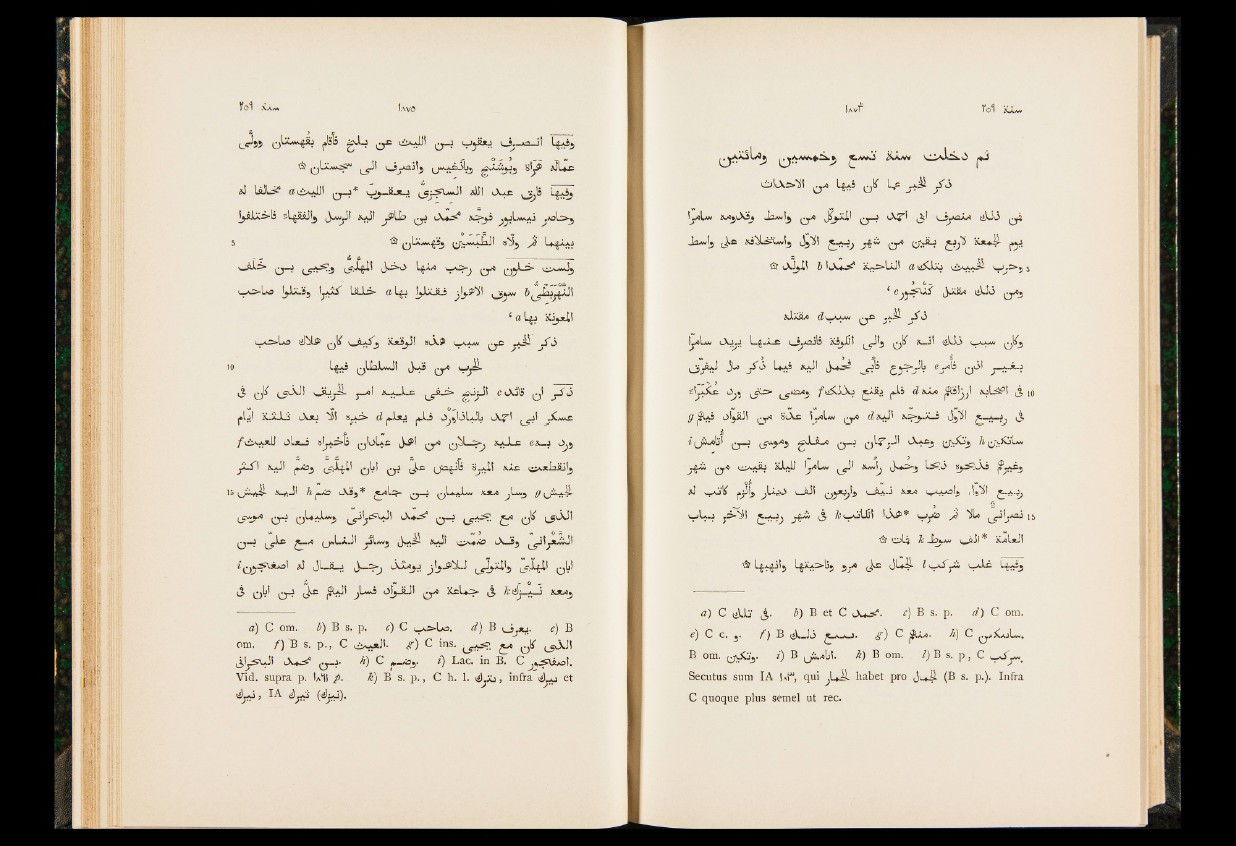 سنة ٢٥٩ ١٨٧٣
ثم دخلت سنة تسع وخمسين ومائتين
ذكر الخبر عما كان فيها من الاحداث
فمن ذلك منصرف ابى احمد بن المتوكّل من واسط وقدومه سامرّا
يوم الجمعة لاربع بقين من شهر ربيع الاوّل واستخلافه على واسط
وحرب الخبيث بتلك a الناحية محمدا b المولّد ۞ 5
ومن ذلك مقتل كَنْجُور c،
ذكر الخبر عن سبب d مقتله
وكان سبب ذلك انه كان والى الكوفة فانصرف عنها يريد سامرّا
بغير اذن فأُمر e بالرجوع فأبى فحُمل اليه فيما ذُكر مال ليفرّق
فى اصحابه ارزاقهم منه d فلم يقنع بذلك f ومضى حتى ورد عُكْبَراء 10
فى ربيع الاوّل فتوجّه اليه d من سامرّا عدّة من القوّاد فيهم g
ساتكين h وتكين وعبد الرحمان بن مفلح وموسى بن أُتامش i
وغيرهم فذبحوه ذبحا وحُمل رأسه الى سامرّا لليلة بقيت من شهر
ربيع الاوّل، واصيب معه نيّف واربعون الف دينار وأُلزم كاتب له
نصرانىّ مالا ثم ضُرب *هذا الكاتب k فى شهر ربيع الآخر بباب 15
العامّة *الف سوط k فمات ۞
وفيها غلب شركب l الجمّال على مرو وناحيتها وانهبها ۞
a) C فى تلك. b) B et C محمد. c) B s. p. d) C om.
e) C c. و. f) B بسبع لذلك. g) C منهم. h) C سابمكين.
B om. وتكين. i) B اناىامش. k) B om. l) B s. p, C سركب.
Secutus sum IA ١٨٣, qui الحمار habet pro الجمال (B s. p.). Infra
C quoque plus semel ut rec.
سنة ٢٥٩ ١٨٧٥
وفيها انصرف يعقوب بن الليث عن بلخ فأقام بقُهستان وولّى
عمّاله هَراة وبُوشَنْج وباذغيس وانصرف الى سجستان ۞
وفيها فارق عبد الله السجزىّ يعقوب *بن الليث a مخالفا له
وحاصر نيسابور فوجّه محمّد بن طاهر اليه الرسل والفقهاء فاختلفوا
بينهما ثم ولّاه الطَّبَسَيْن وقهستان ۞ 5
ولستّ خلون من رجب منها دخل المهلّبىّ ويحيى بن خلف
النَّهْرَبَطِّىّ b سوق الاهواز فقتلوا بها a خلقا كثيرا وقتلوا صاحب
المعونة بها a،
ذكر الخبر عن سبب هذه الوقعة وكيف كان هلاك صاحب
الحرب من قبل السلطان فيها 10
ذكر ان قائد c الزنج خفى عليه امر الحريق الذى كان فى
عسكر ابى احمد بالباذاورد فلم يعلم d خبره الا بعد ثلثة ايام
ورد به e عليه رجلان من اهل عبّادان فاخبراه فعاد للعيث f
وانقطعت عنه الميرة فأنهض على بن ابان المهلّبىّ وضمّ اليه اكثر
الجيش g وسار معه سليمان بن جامع *وقد ضمّ h اليه الجيش 15
الذى كان مع يحيى بن محمّد البحرانىّ وسليمان بن موسى
الشَّعْرانىّ وقد ضُمّت اليه الخيل وسائر الناس مع علىّ بن
ابان المهلّبىّ والمتولّى للاهواز يومئذ رجل يقال له اصغجون i
ومعه نيزك k فى جماعة من القوّاد فسار اليهم على بن ابان فى
a) C om. b) B s. p. c) C صاحب. d) B يعرف. e) B
om. f) B s. p., C العيث. g) C ins. الذى كان مع يحيى
بن محمد البحرانى. h) C وضم. i) Lac. in B. C اصغجور.
Vid. supra p. k) B s. p., C h. l. نيزك, infra نيرك et
نيرك, IA نيرك (نيزك).